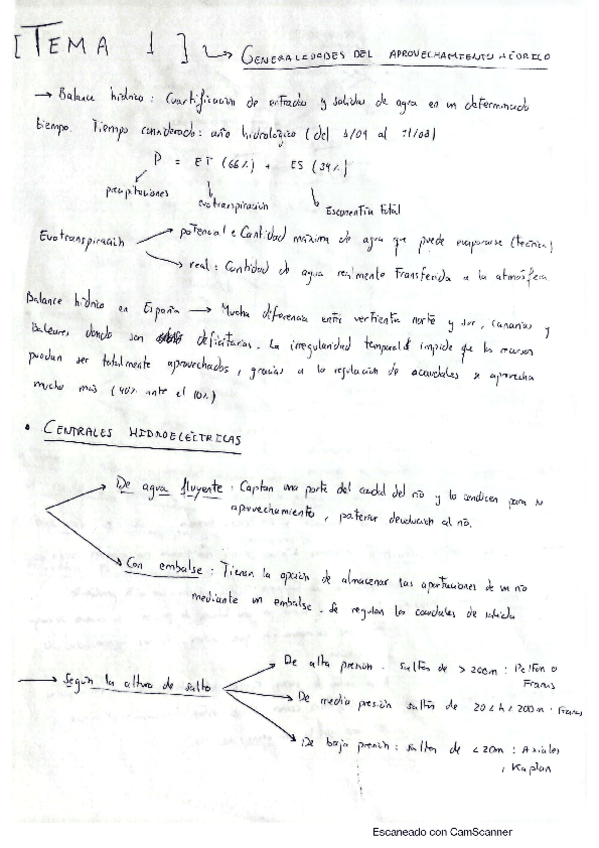 [TEMA 1] → GENERALIDADES DEL APROVECHAMIENTO HÍDRICO
→ Balance hídrico : Cuantificación de entradas y salidas de agua en un determinado
tiempo. Tiempo considerado : año hidrológico (del 1/09 al 31/08)
P = ET (66%) + ES (34%)
precipitaciones
evotranspiración
Escorrentía total
Evotranspiración
potencial : Cantidad máxima de agua que puede evaporarse (técnica)
real : Cantidad de agua realmente transferida a la atmósfera
Balance hídrico en España → Mucha diferencia entre vertiente norte y sur, canarias y
Baleares donde son deficitarias. La irregularidad temporal impide que los recursos
puedan ser totalmente aprovechados, gracias a la regulación de caudales se aprovecha
mucho más (40% ante el 10%)
• CENTRALES HIDROELÉCTRICAS
De agua fluyente : Captan una parte del caudal del río y lo conducen para su
aprovechamiento, posterior devolución al río.
Con embalse : Tienen la opción de almacenar las aportaciones de un río
mediante un embalse. Se regulan los caudales de salida
→ Según la altura de salto
De alta presión . saltos de > 200m : Pelton o
Francis
De media presión saltos de 20 < h < 200m . Francis
De baja presión : saltos de < 20m : Axiales
, Kaplan
Escaneado con CamScanner